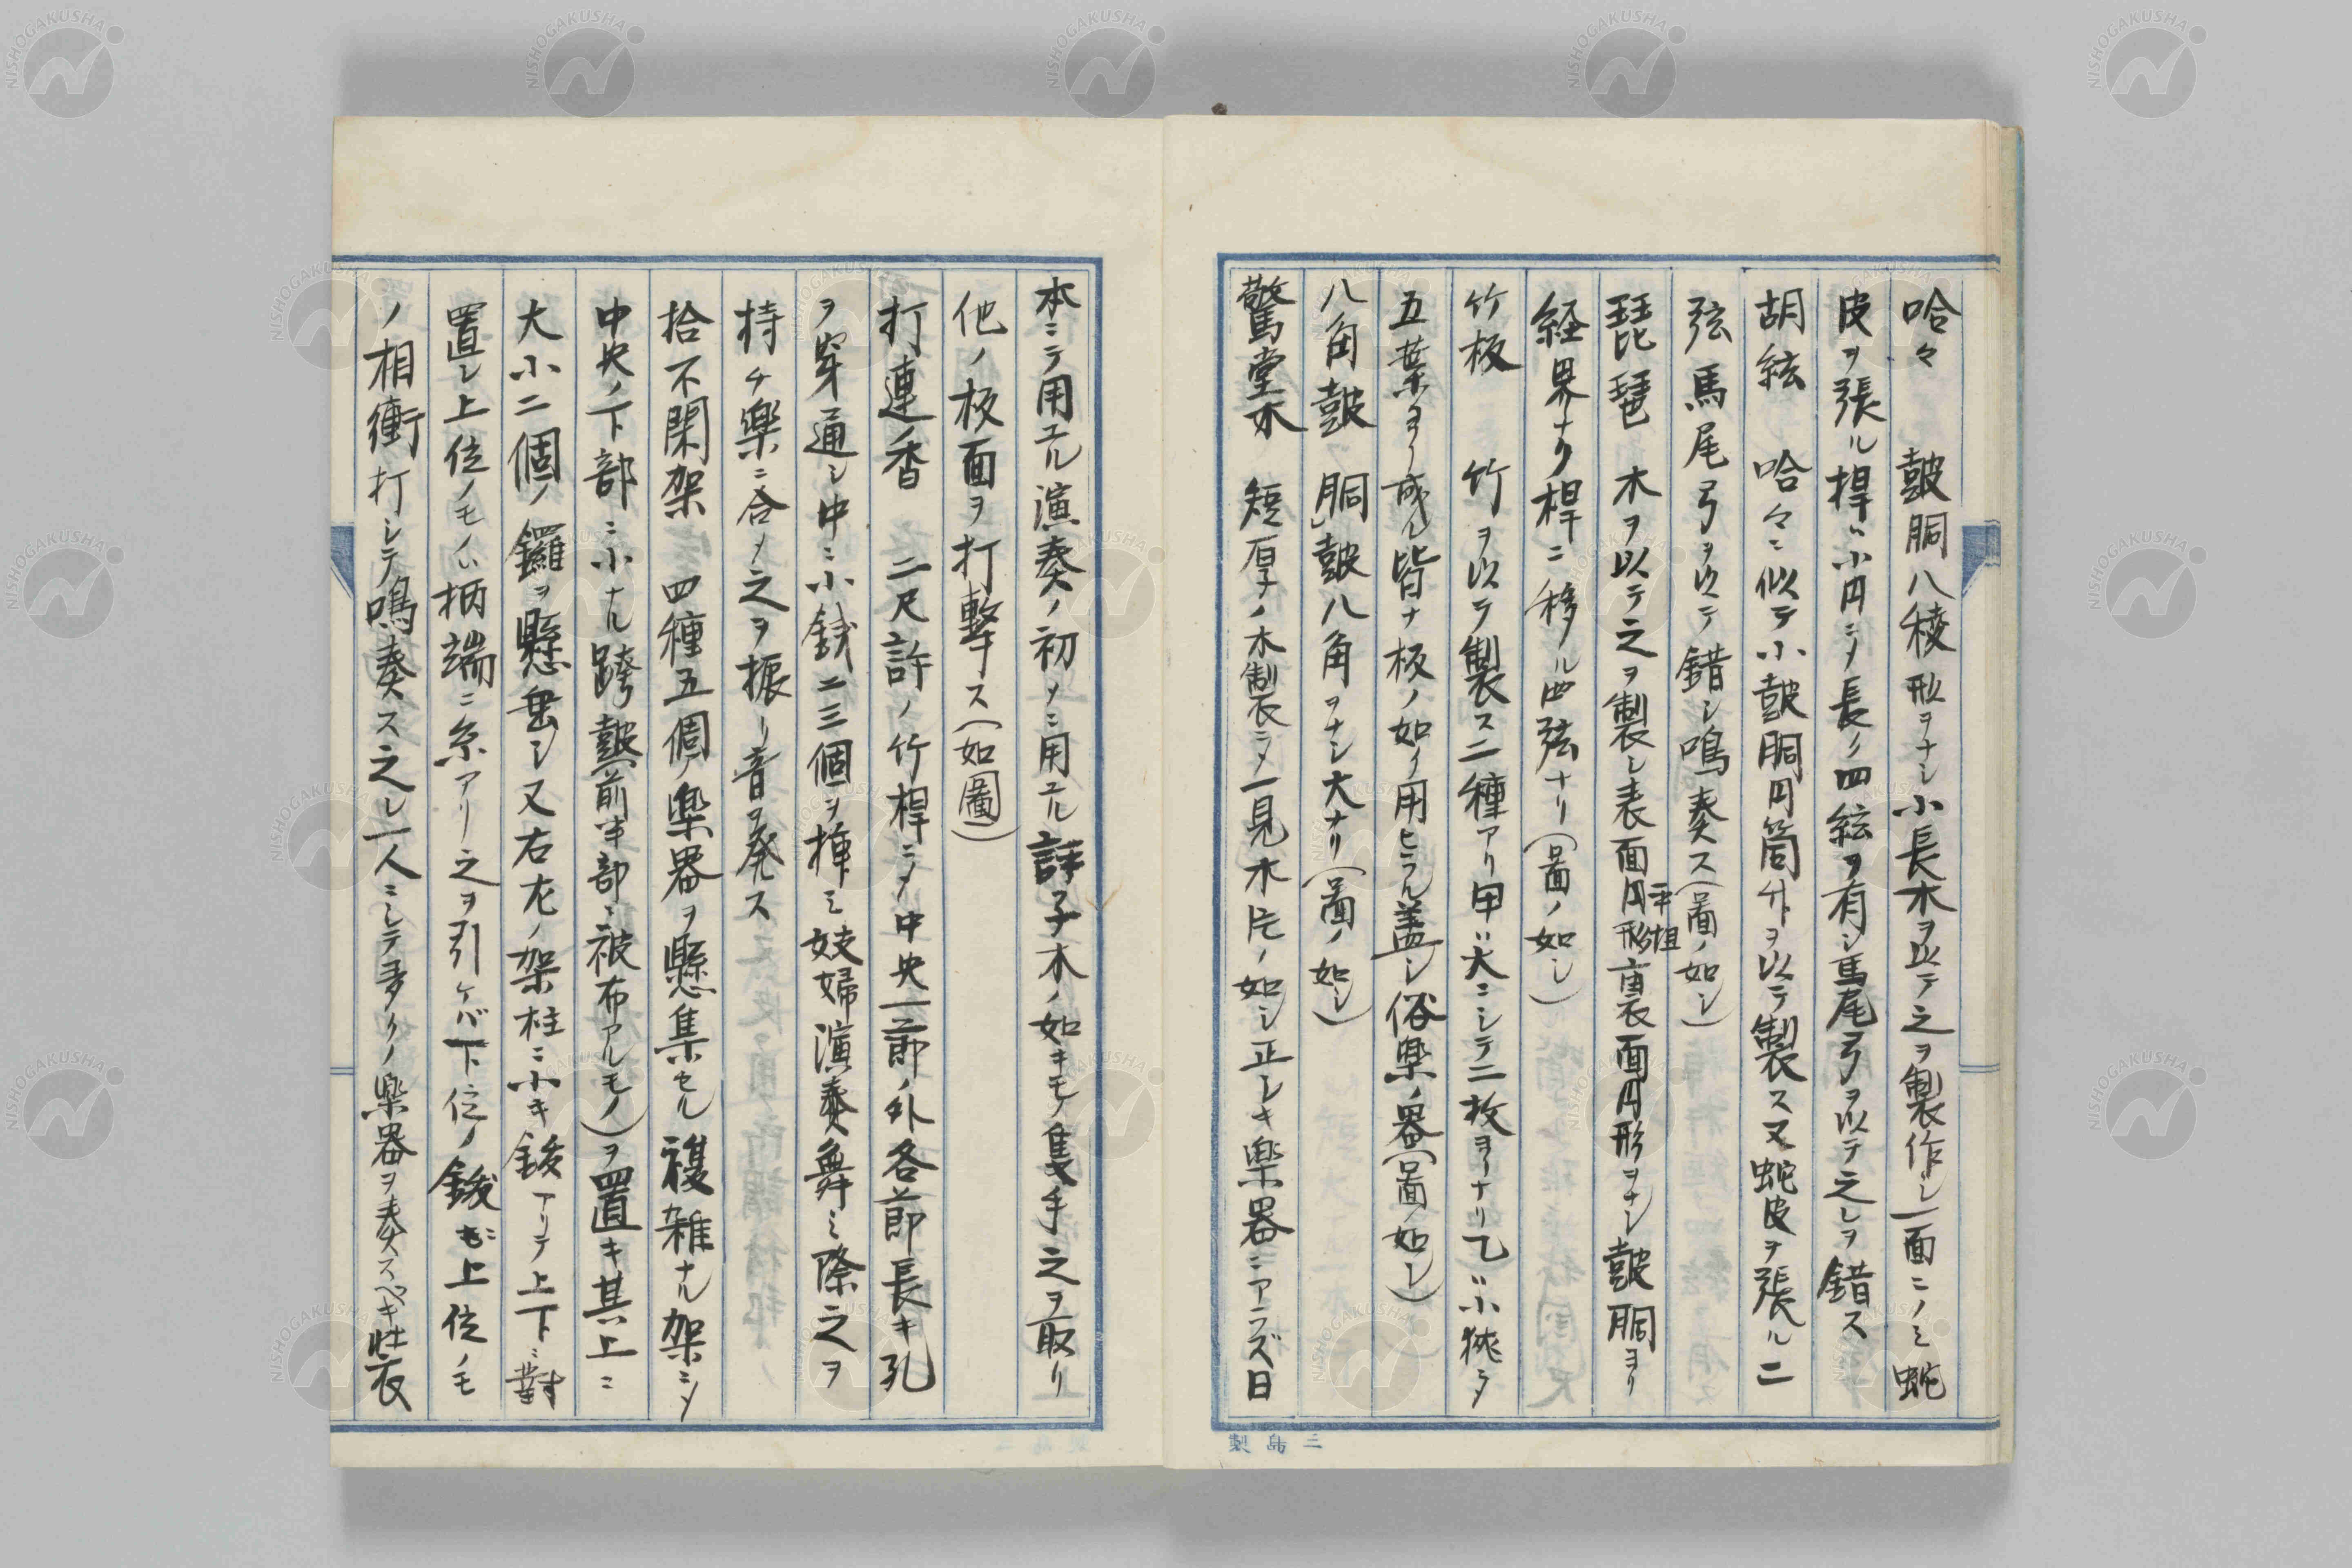 哈々　鼓胴八稜形ヲナシ小長木ヲ以テ之ヲ製作シ一面ニノミ蛇
皮ヲ張ル桿ハ小円ニメ長ク四絃ヲ有シ馬尾弓ヲ以テ之レヲ錯ス
胡絃　哈々ニ似テ小鼓胴円筒竹ヲ以テ製ス又蛇皮ヲ張ル二
弦馬尾弓ヲ以テ錯シ鳴奏ス(圖ノ如シ)
琵琶　木ヲ以テ之ヲ製シ表面平坦円形裏面円形ヲナシ鼓胴ヨリ
経界ナク桿ニ移ル四弦ナリ(圖ノ如シ)
竹板　竹ヲ以テ製ス二種アリ甲ハ大ニシテ二枚ヨリナリ乙ハ小狹ニメ
五葉ヨリ成ル皆ナ板ノ如ク用ヒラル蓋シ俗樂ノ器(圖ノ如シ)
八角鼓　胴鼓八角ヲナシ大ナリ(圖ノ如シ)
驚堂木　短厚ノ木製ニメ一見木片ノ如シ正シキ樂器ニアラズ日
三島製
本ニテ用ユル演奏ノ初メニ用ユル拍子木ノ如キモノ隻手之ヲ取リ
他ノ板面ヲ打撃ス(如圖)
打連香　二尺許ノ竹桿ニメ中央一節ノ外各節長キ孔
ヲ穿通シ中ニ小銭二三個ヲ挿ミ妓婦演奏舞ノ際之ヲ
持チ樂ニ合メ之ヲ振リ音ヲ発ス
拾不閑架　四種五個ノ樂器ヲ懸集セル複雑ナル架ニメ
中央ノ下部ニ小ナル跨鼓(前半部ニ被布アルモノ)ヲ置キ其上ニ
大小二個ノ鑼ヲ懸垂シ又右左ノ架柱ニ小キ鈸アリテ上下ニ對
置シ上位ノモノハ柄端ニ糸アリ之ヲ引ケバ下位ノ鈸ニ上位ノモ
ノ相衝打シテ鳴奏ス之レ一人ニシテ多クノ樂器ヲ奏スベキ仕衣